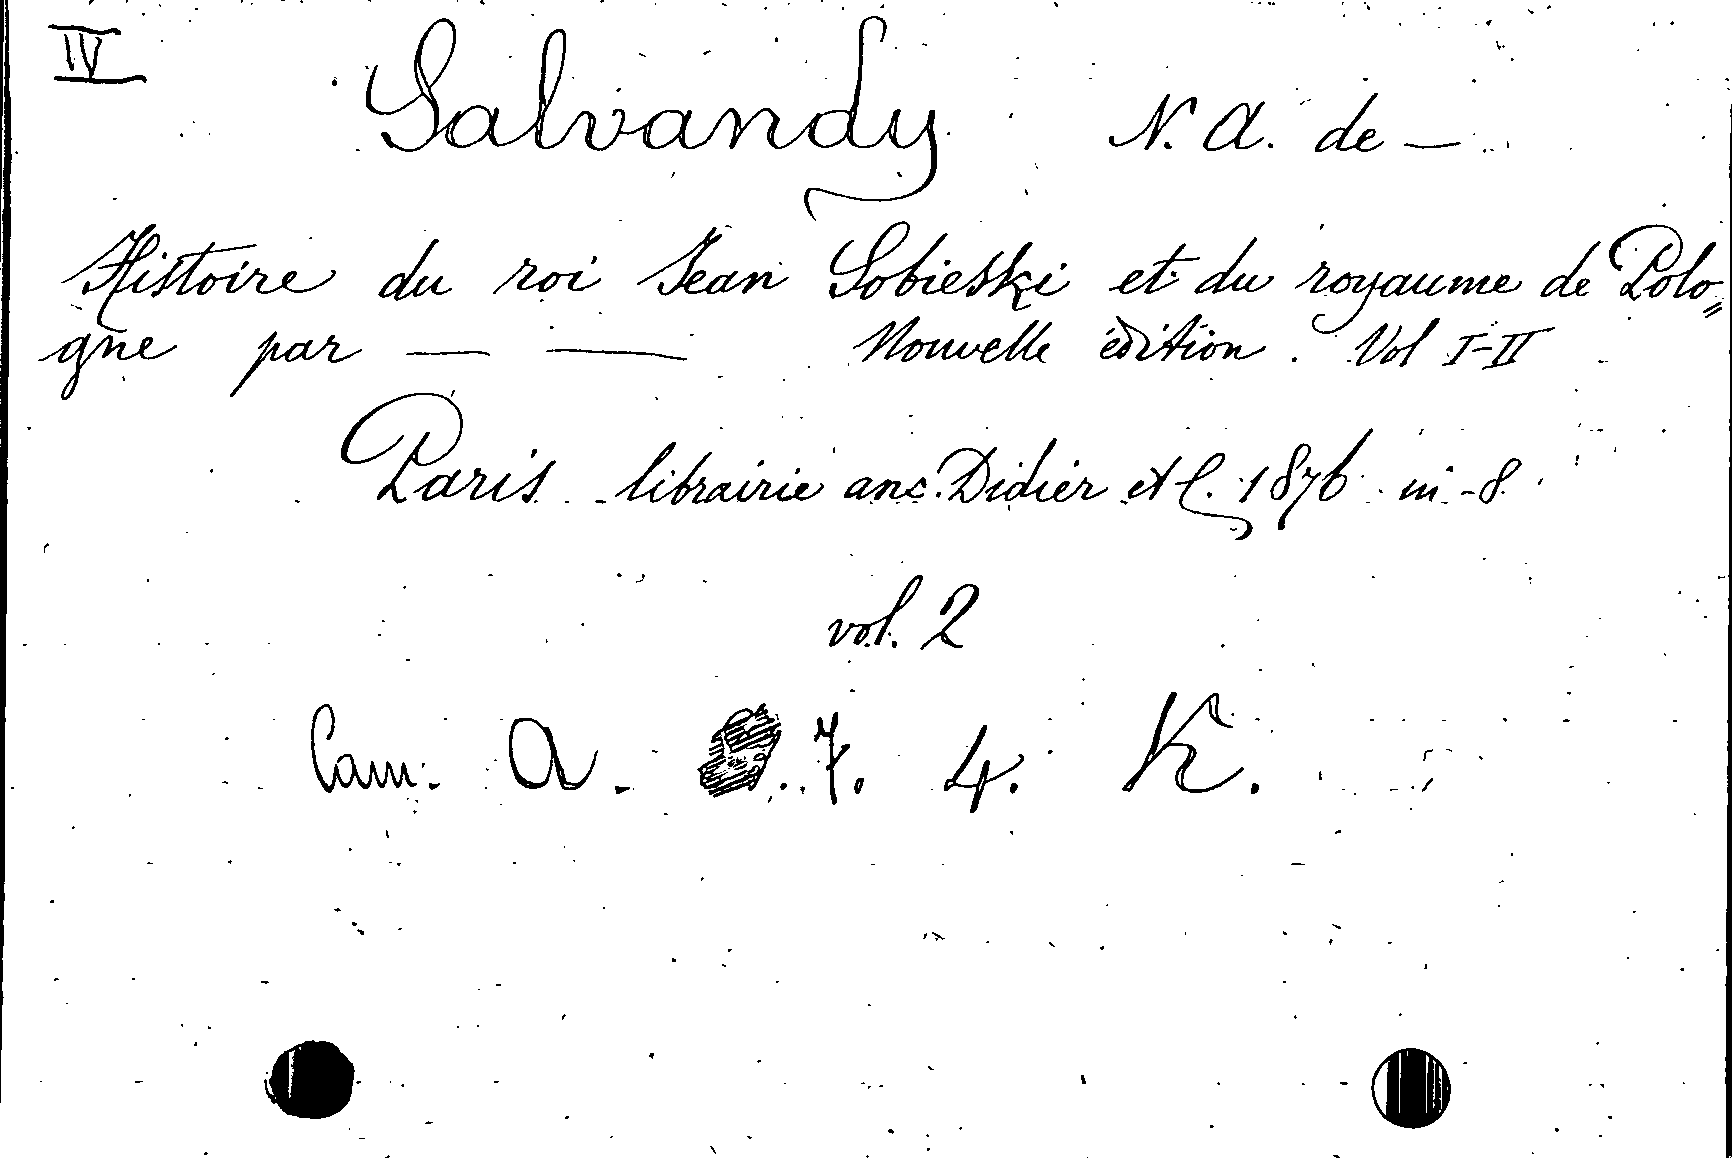 IV
Salvandy N. A. de —
Histoire du roi Jean Sobieski et du royaume de Polo„
gne par — — Nouvelle édition. Vol I-II
Paris librairie anc. Didier et C. 1876 in-8
vol. 2
Cam. A. 7. 4. K.